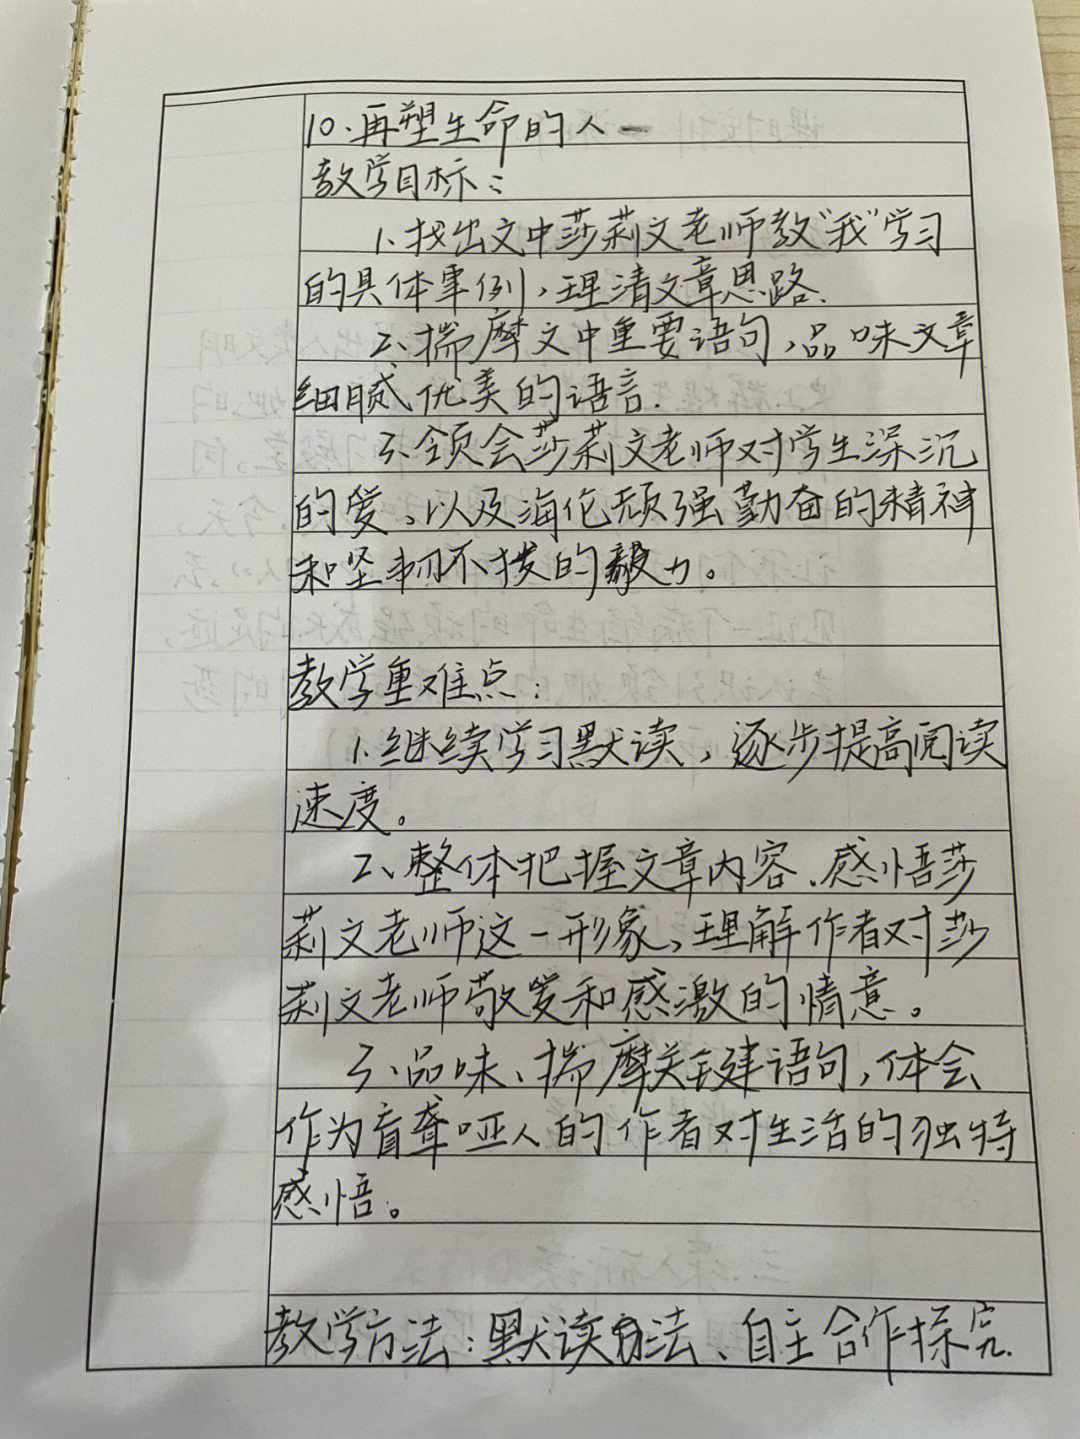 10.再塑生命的人
教学目标：
1.找出文中莎莉文老师教“我”学习
的具体事例，理清文章思路.
2、揣摩文中重要语句，品味文章
细腻优美的语言.
3、领会莎莉文老师对学生深沉
的爱、以及海伦顽强勤奋的精神
和坚韧不拔的毅力。
教学重难点：
1.继续学习默读，逐步提高阅读
速度。
2、整体把握文章内容、感悟莎
莉文老师这一形象，理解作者对莎
莉文老师敬爱和感激的情意。
3、品味、揣摩关键语句，体会
作为盲聋哑人的作者对生活的独特
感悟。
教学方法：默读方法、自主合作探究